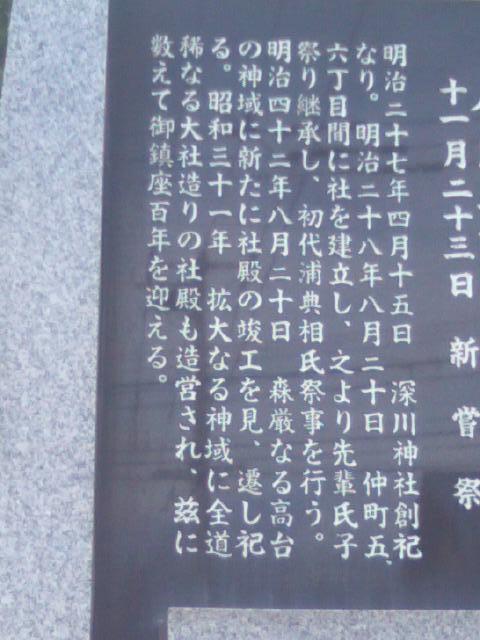 十一月二十三日 新嘗祭
明治二十七年四月十五日 深川神社創祀
なり。明治二十八年八月二十日 仲町五、
六丁目間に社を建立し、之より先輩氏子
祭り継承し、初代浦典相氏祭事を行う。
明治四十二年八月二十日 森厳なる高台
の神域に新たに社殿の竣工を見、遷し祀
る。昭和三十一年 拡大なる神域に全道
稀なる大社造りの社殿も造営され、茲に
数えて御鎮座百年を迎える。